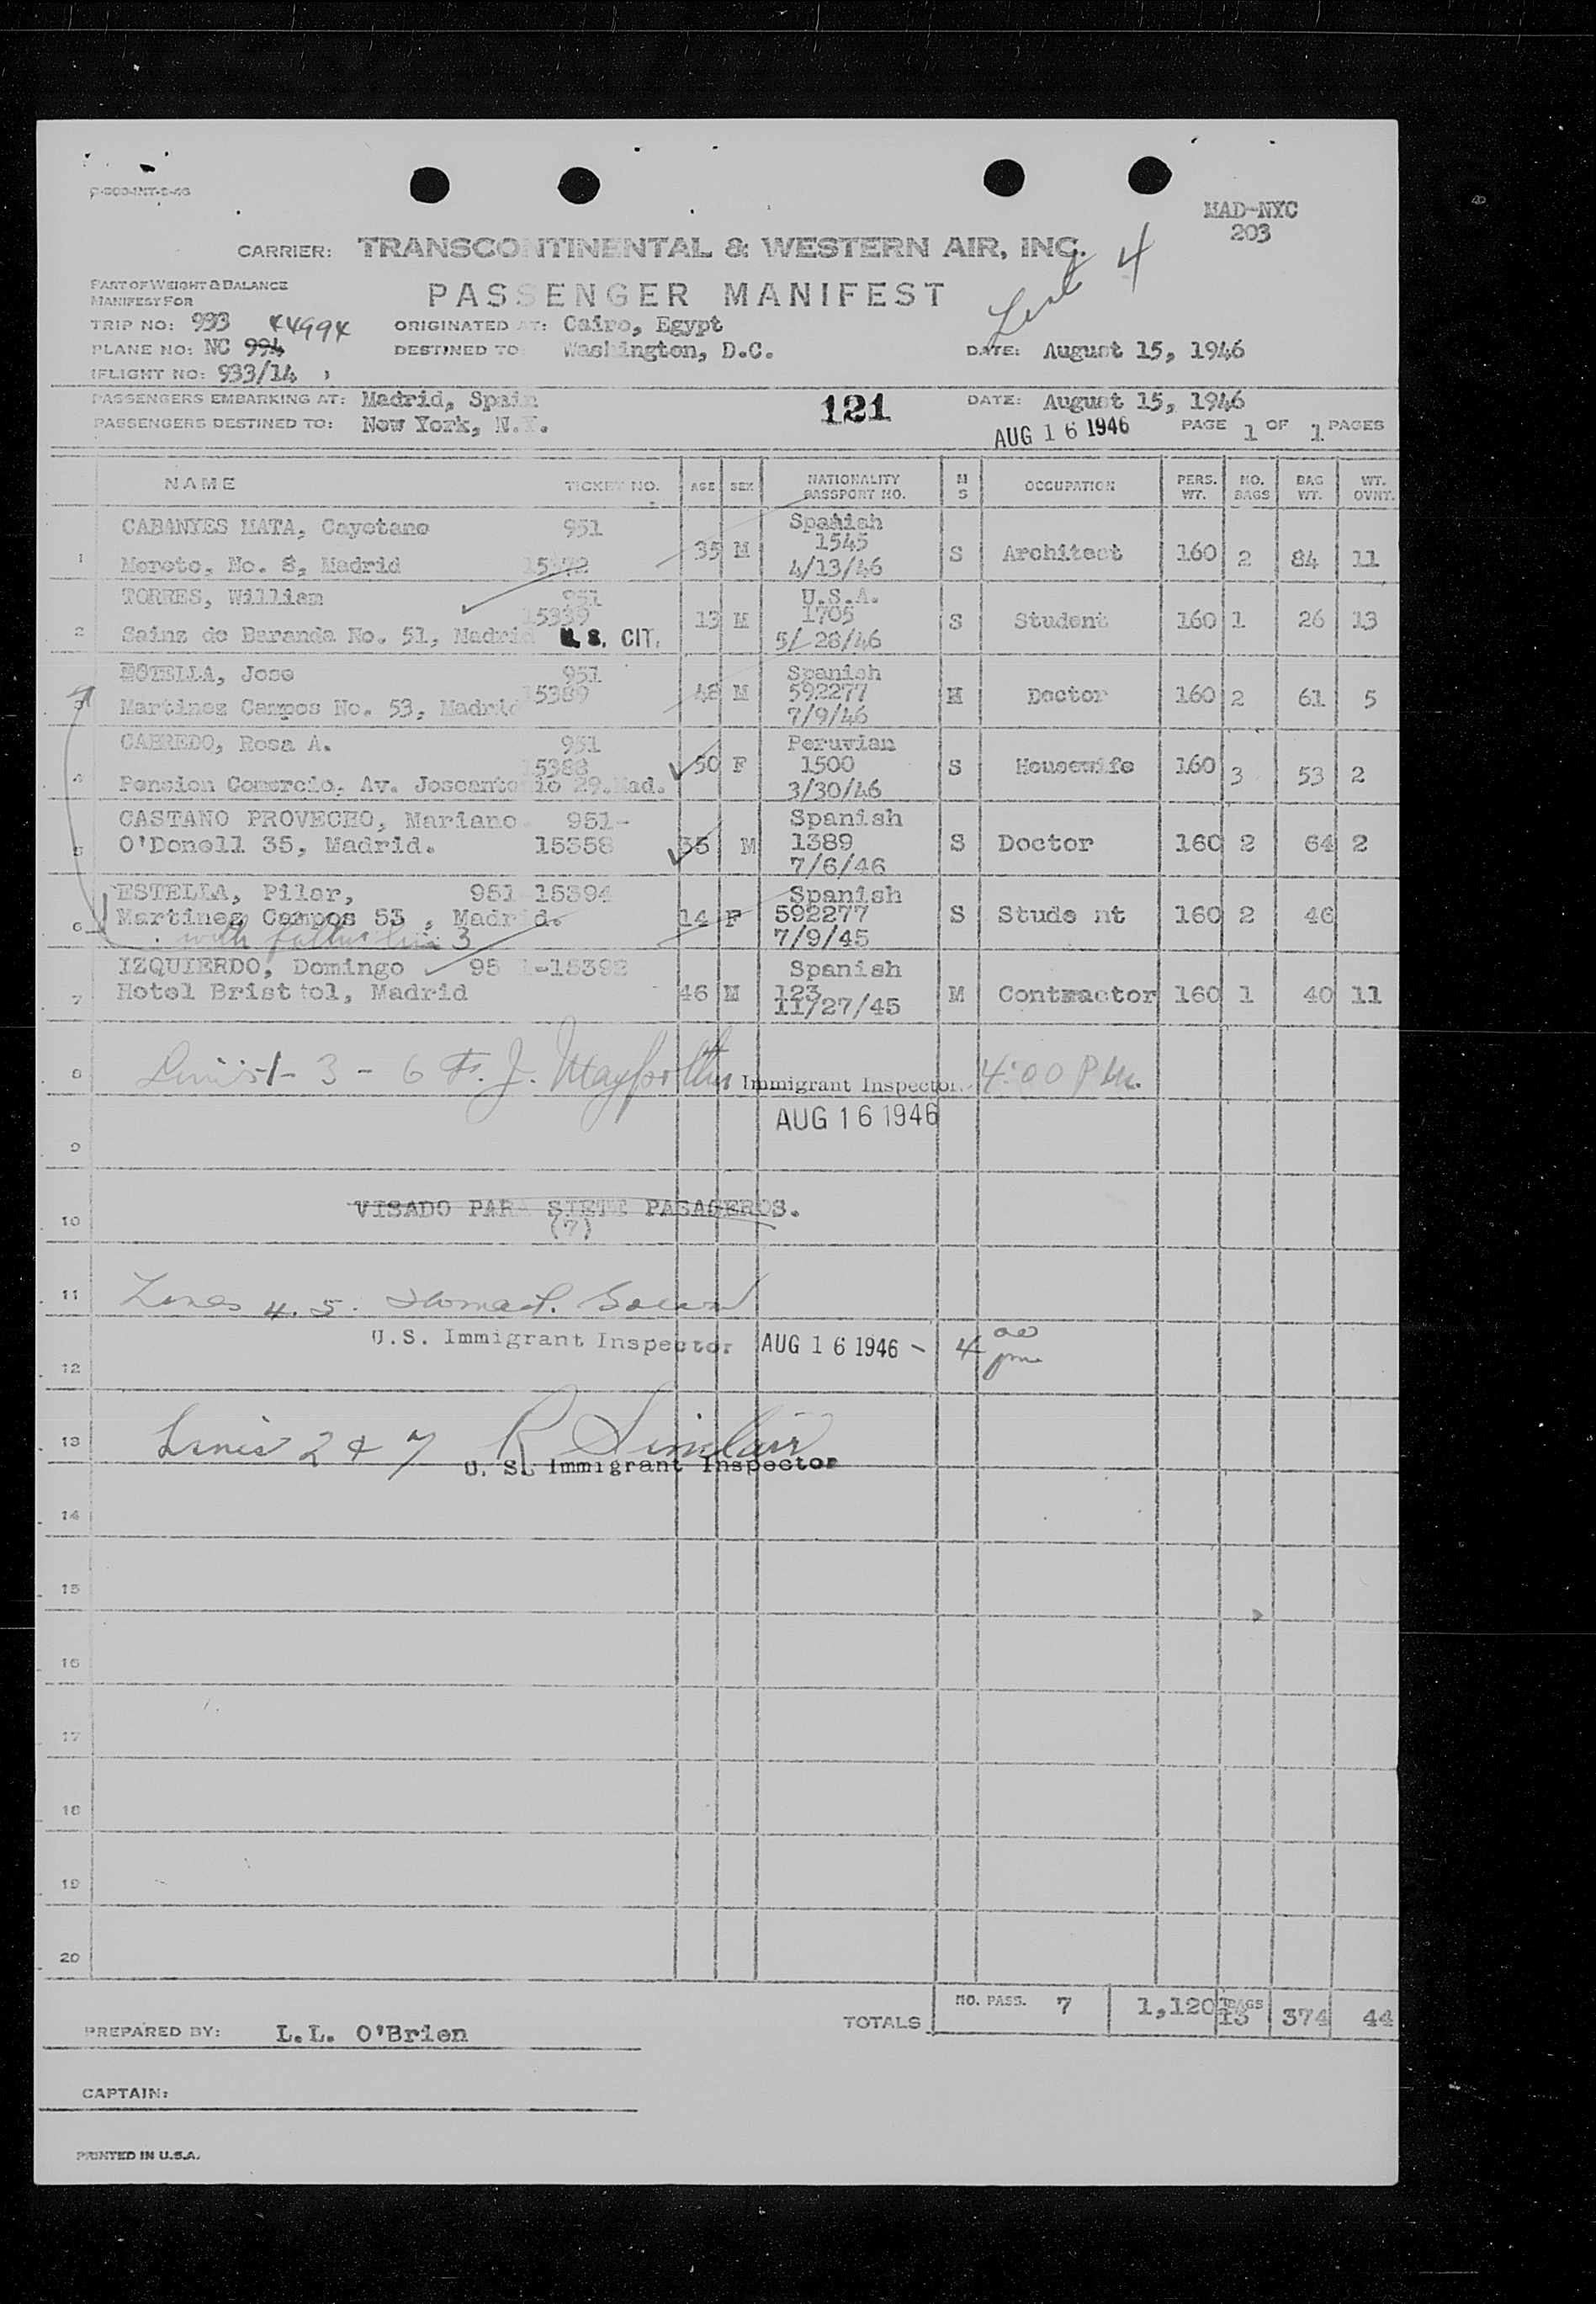 MAD-NYC
203
CARRIER: TRANSCONTINENTAL & WESTERN AIR, INC.
List 4
PART OF WEIGHT & BALANCE
MANIFEST FOR
PASSENGER MANIFEST
TRIP NO: 993 44994 ORIGINATED AT: Cairo, Egypt
PLANE NO: NC 994 DESTINED TO: Washington, D.C. DATE: August 15, 1946
FLIGHT NO: 933/14
PASSENGERS EMBARKING AT: Madrid, Spain 121 DATE: August 15, 1946
PASSENGERS DESTINED TO: New York, N.Y. AUG 16 1946 PAGE 1 OF 1 PAGES
NAME TICKET NO. AGE SEX NATIONALITY PASSPORT NO. M S OCCUPATION PERS. WT. NO. BAGS BAG WT. WT. OVNT.
CABANYES MATA, Cayetano 951 Spanish
1 35 M 1545 S Architect 160 2 84 11
Moreto, No. 8, Madrid 4/13/46
TORRES, William 951 U.S.A.
15339 13 M 1705 S Student 160 1 26 13
2 Sainz de Baranda No. 51, Madrid U.S. CIT. 5/28/46
ESTELLA, Jose 951 Spanish
15389 48 M 592277 M Doctor 160 2 61 5
3 Martinez Campos No. 53, Madrid 7/9/46
CABREDO, Rosa A. 951 Peruvian
15388 50 F 1500 S Housewife 160 3 53 2
4 Pension Comercio, Av. Joseantonio 29.Mad. 3/30/46
CASTANO PROVECHO, Mariano 951- Spanish
5 O'Donell 35, Madrid. 15358 35 M 1389 S Doctor 160 2 64 2
7/6/46
ESTELLA, Pilar, 951 15394 Spanish
6 Martinez Campos 53, Madrid. 14 F 592277 S Stude nt 160 2 46
with father line 3 7/9/45
IZQUIERDO, Domingo 951-15392 Spanish
7 Hotel Bristtol, Madrid 46 M 123 M Contractor 160 1 40 11
11/27/45
8 Lines 1 - 3 - 6 F. J. Immigrant Inspector. 4:00 PM.
AUG 16 1946
9
VISADO PARA SIETE PASAGEROS.
10 (7)
11 Lines 4. 5.
U.S. Immigrant Inspector AUG 16 1946 - 4 00 pm
12
13 Lines 2 & 7 R Sinclair
U. S. Immigrant Inspector
14
15
16
17
18
19
20
TOTALS NO. PASS. 7 1,120 BAGS 13 374 44
PREPARED BY: L.L. O'Brien
CAPTAIN:
PRINTED IN U.S.A.